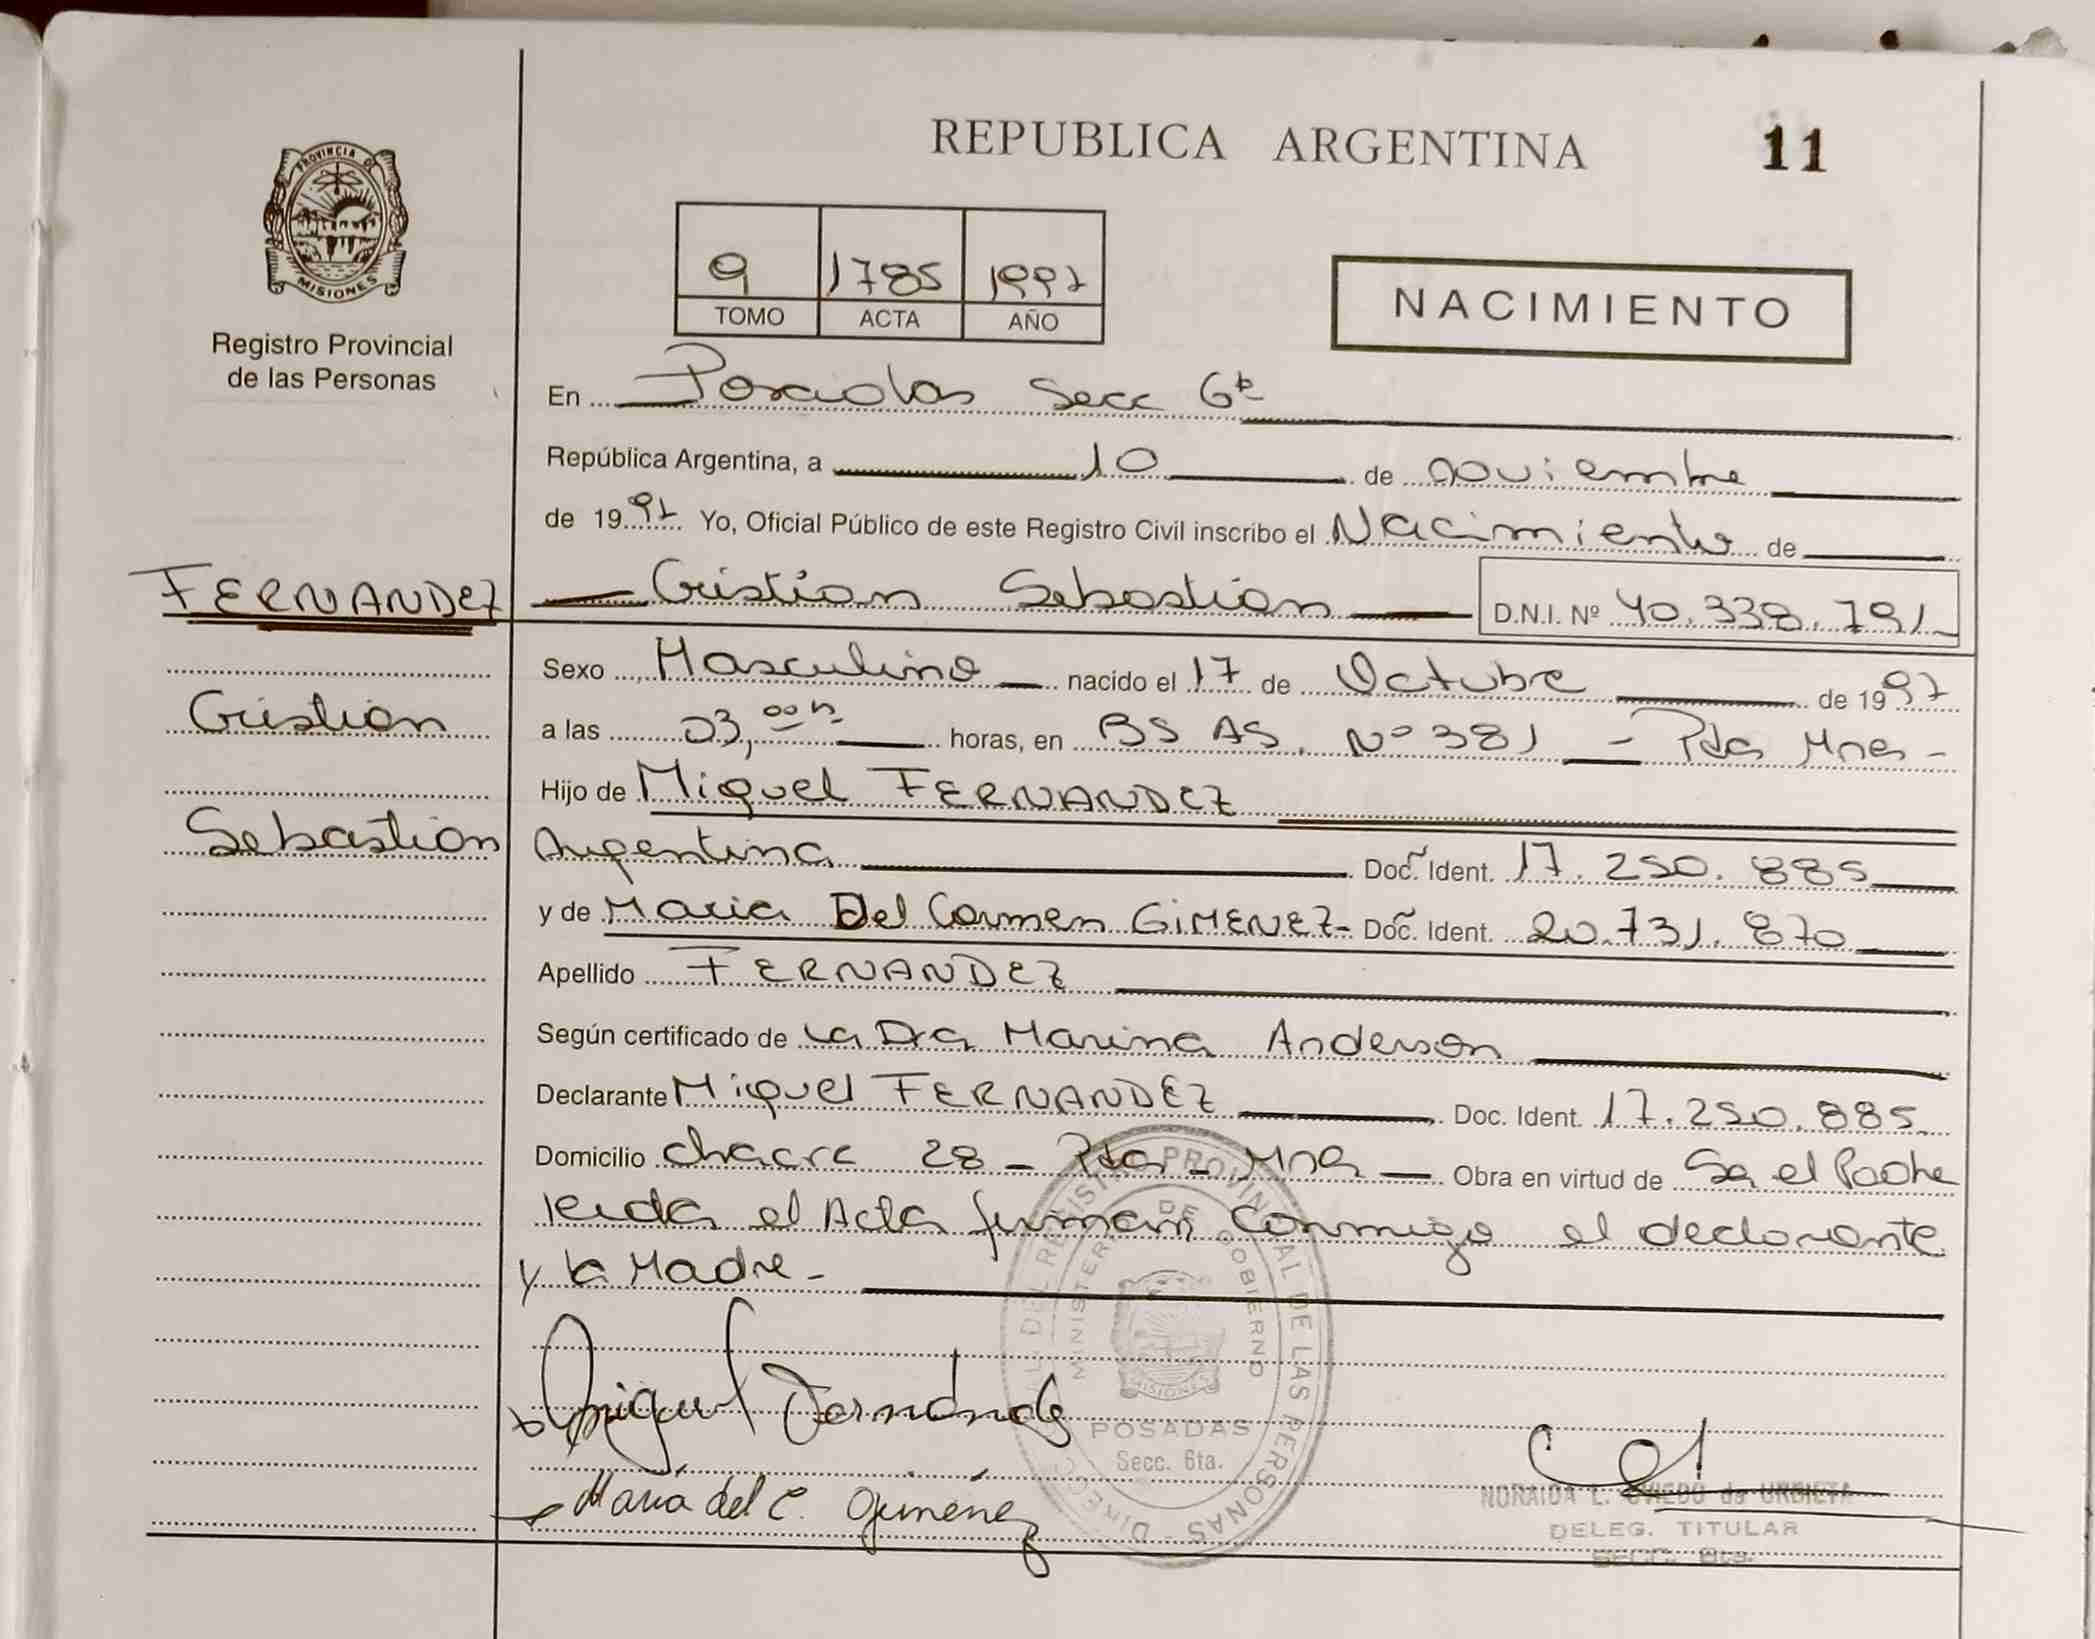 REPUBLICA ARGENTINA
11
PROVINCIA DE
MISIONES
Registro Provincial
de las Personas
9 1785 1997
TOMO ACTA AÑO
NACIMIENTO
En Posadas Secc 6ta
República Argentina, a 10 de noviembre
de 1997 Yo, Oficial Público de este Registro Civil inscribo el Nacimiento de
FERNANDEZ Cristian Sebastian D.N.I. Nº 40.338.791
Sexo Masculino nacido el 17 de Octubre de 1997
Cristian
a las 03,00 h. horas, en BS AS. Nº 381 - Pdas Mnes -
Hijo de Miguel FERNANDEZ
Sebastian
Argentina Doc. Ident. 17.250.885
y de Maria Del Carmen GIMENEZ - Doc. Ident. 20.731.870
Apellido FERNANDEZ
Según certificado de La Dra Marina Anderson
Declarante Miguel FERNANDEZ Doc. Ident. 17.250.885
Domicilio chacra 28 - Pdas - Mnes Obra en virtud de Ser el Padre
leida el Acta firman conmigo el declarante
y la Madre -
Miguel Fernández
Maria del C. Gimenez
DIRECC. GRAL DEL REGISTRO PROVINCIAL DE LAS PERSONAS
MINISTERIO DE GOBIERNO
MISIONES
POSADAS
Secc. 6ta.
NORAIDA L. OVIEDO de URBIETA
DELEG. TITULAR
SECC. 6ta.